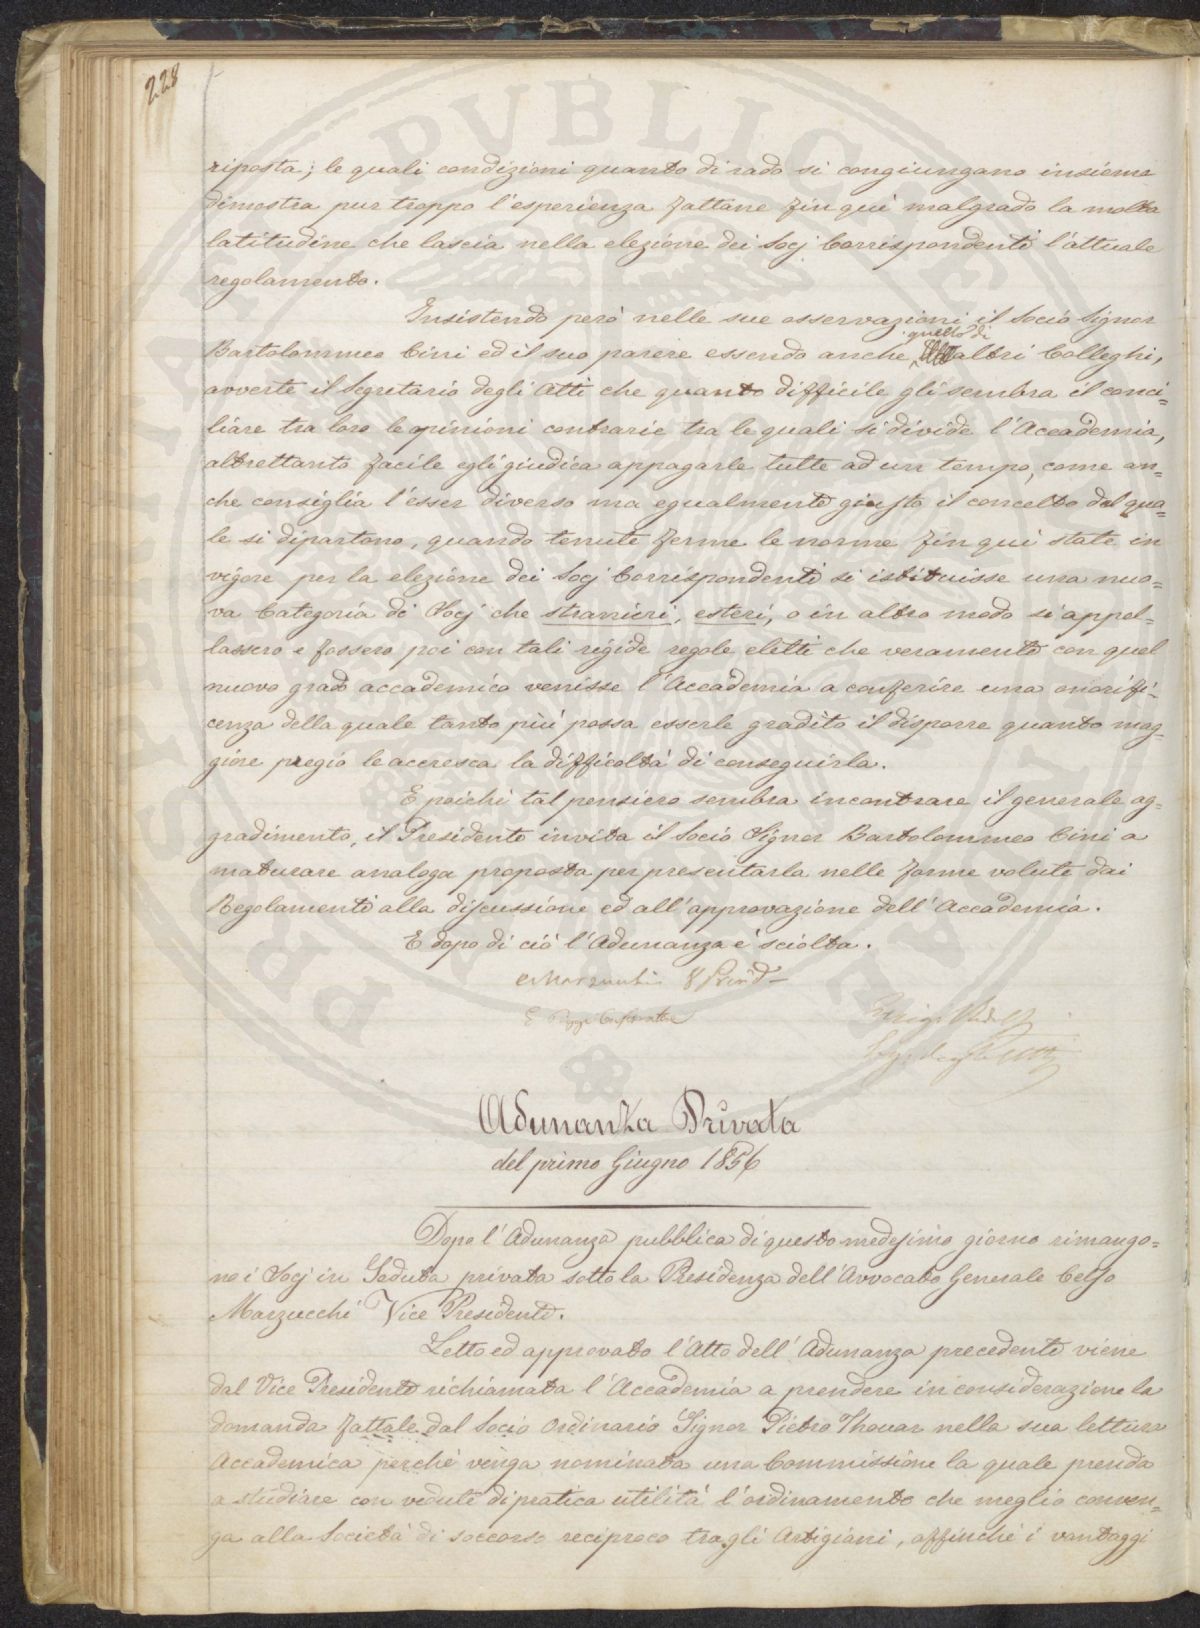 228
riposta; le quali condizioni quanto di rado si congiungano insieme
dimostra pur troppo l'esperienza fattane fin quì malgrado la molta
latitudine che lascia nella elezione dei Socj Corrispondenti l'attuale
regolamento.
Insistendo però nelle sue osservazioni il Socio Signor
quello di
Bartolommeo Cini ed il suo parere essendo anche altri Colleghi,
avverte il Segretario degli Atti che quanto difficile gli sembra il conci=
liare tra loro le opinioni contrarie tra le quali si divide l'Accademia,
altrettanto facile egli giudica appagarle tutte ad un tempo, come an=
che consiglia l'esser diverso ma egualmente giusto il concetto dal qua=
le si dipartono, quando tenute ferme le norme fin quì state in
vigore per la elezione dei Socj Corrispondenti si istituisse una nuo=
va Categoria di Socj che stranieri, esteri, o in altro modo si appel=
lassero e fossero poi con tali rigide regole eletti che veramente con quel
nuovo grado accademico venisse l'Accademia a conferire una onorifi=
cenza della quale tanto più possa esserle gradito il disporre quanto mag=
giore pregio le accresca la difficoltà di conseguirla.
E poichè tal pensiero sembra incontrare il generale ag=
gradimento, il Presidente invita il Socio Signor Bartolommeo Cini a
maturare analoga proposta per presentarla nelle forme volute dai
Regolamenti alla discussione ed all'approvazione dell'Accademia.
E dopo di ciò l'Adunanza è sciolta.
C Marzucchi V Presid
E Poggi
Segr. degli Atti
Adunanza Privata
del primo Giugno 1856
Dopo l'Adunanza pubblica di questo medesimo giorno rimango=
no i Socj in Seduta privata sotto la Presidenza dell'Avvocato Generale Celso
Marzucchi Vice Presidente.
Letto ed approvato l'Atto dell'Adunanza precedente viene
dal Vice Presidente richiamata l'Accademia a prendere in considerazione la
domanda fattale dal Socio Ordinario Signor Pietro Thouar nella sua lettura
Accademica perchè venga nominata una Commissione la quale prenda
a studiare con vedute di pratica utilità l'ordinamento che meglio conven=
ga alla Società di soccorso reciproco tra gli Artigiani, affinchè i vantaggi
PVBLICAE